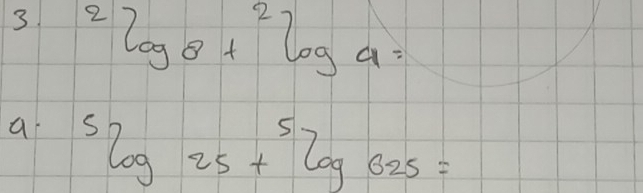 3. ²log 8 + ²log a =
a. ⁵log 25 + ⁵log 625 =